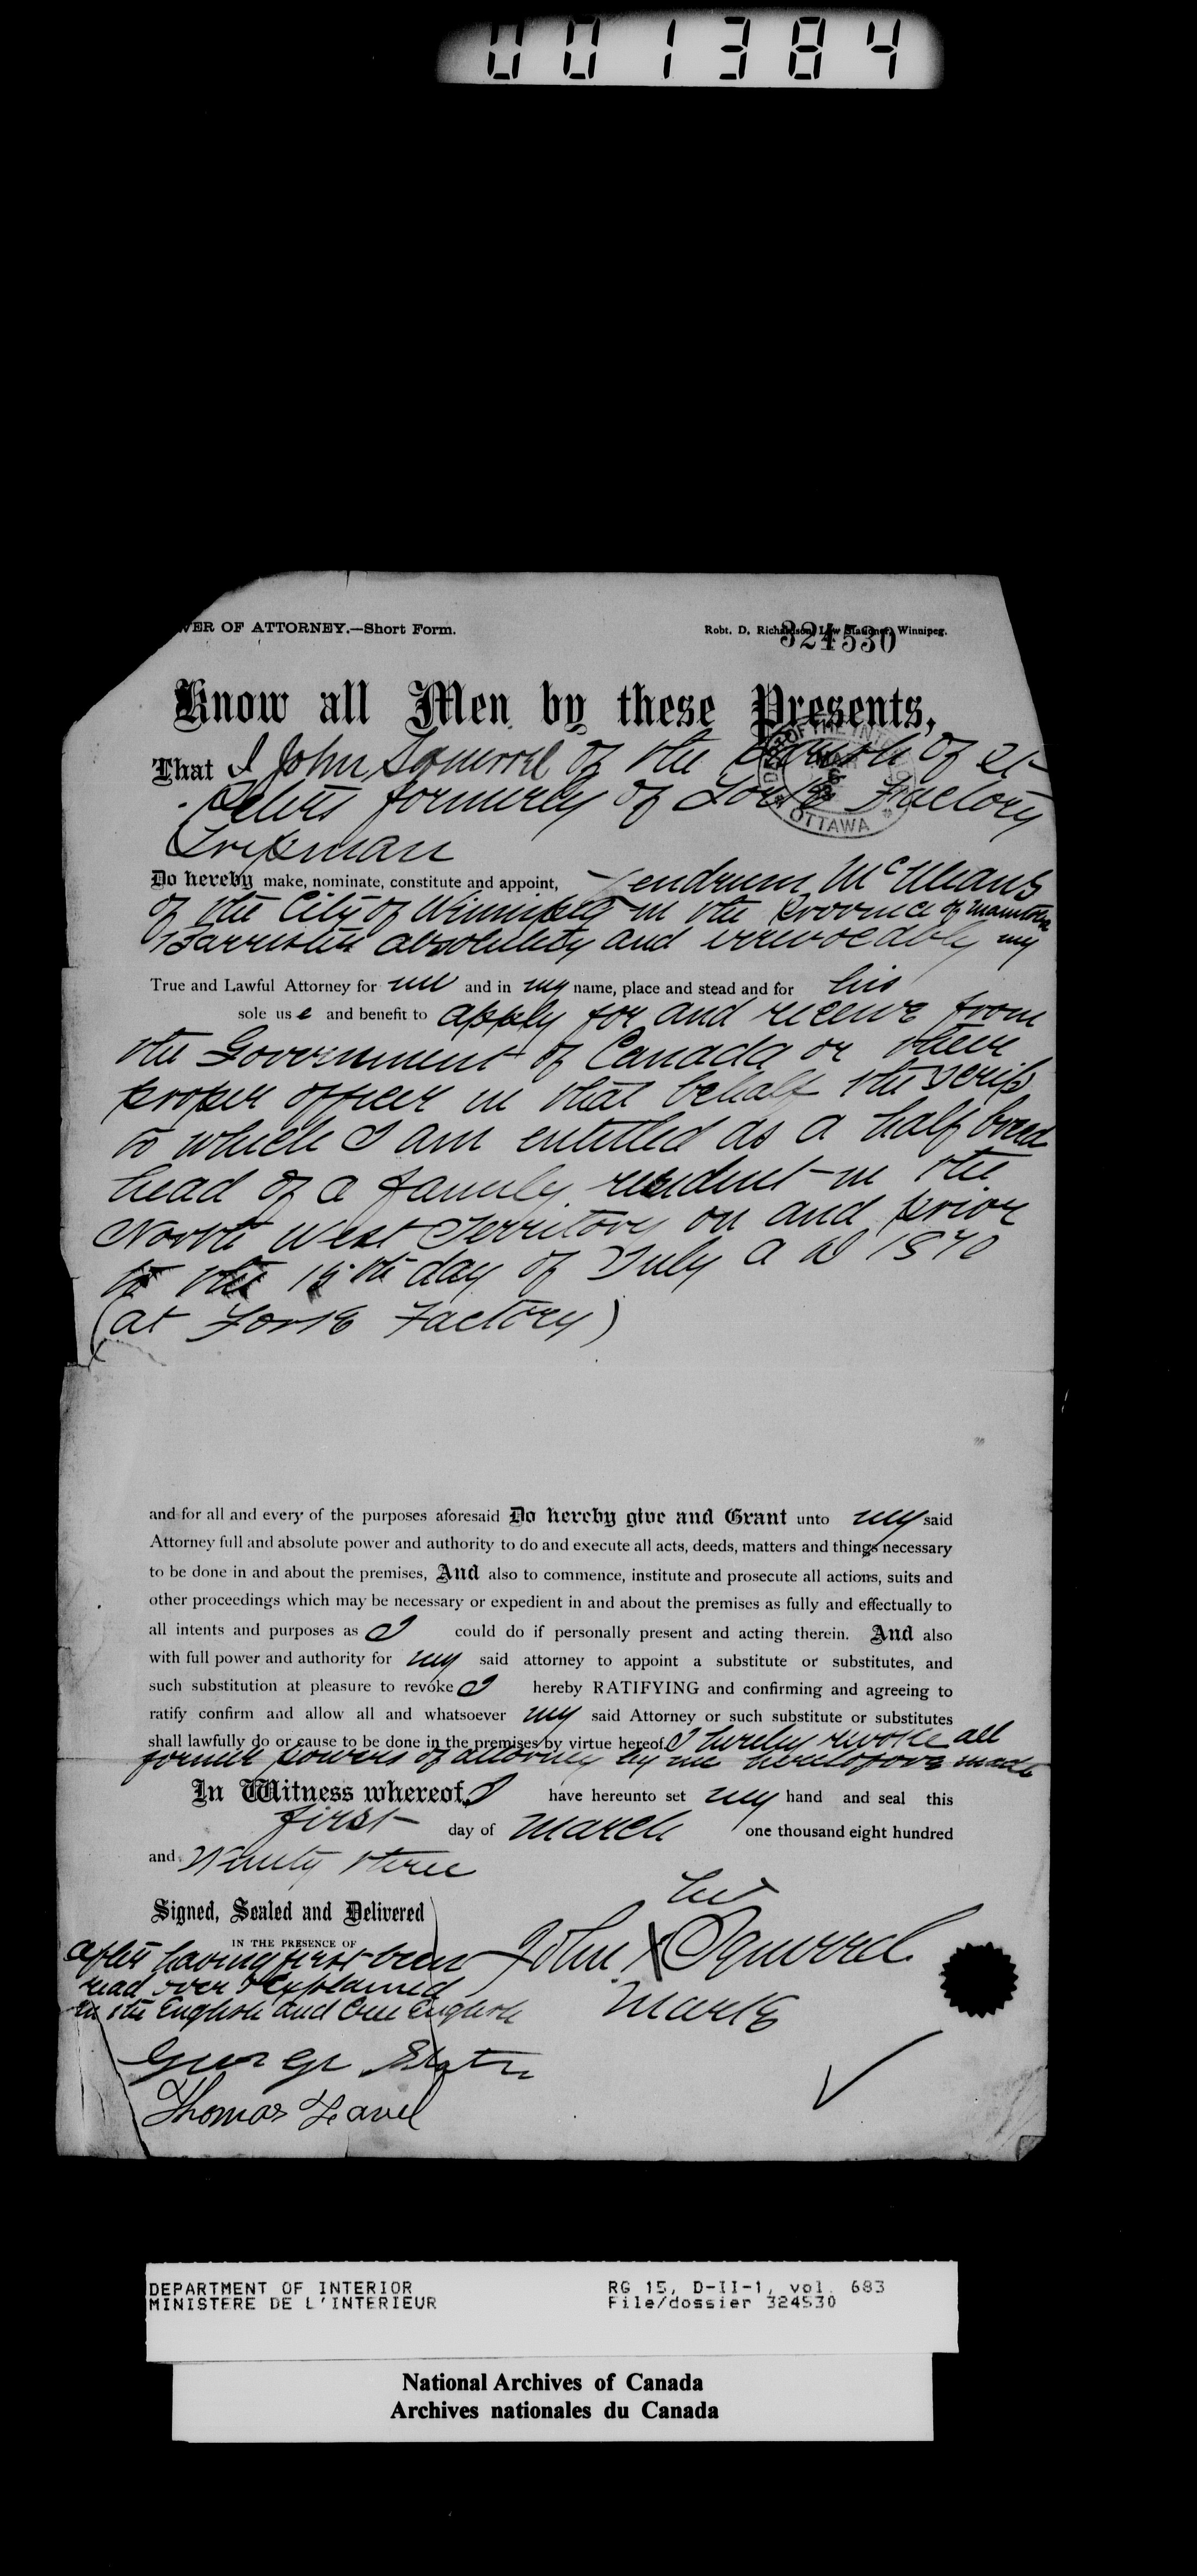 001384
WER OF ATTORNEY.—Short Form.
Robt. D. Richardson, Law Stationer, Winnipeg.
324530
Know all Men by these Presents,
That I John Squirrel of the Parish of St
Peters formerly of York Factory
Tripman
DEPT OF THE INTERIOR
OTTAWA
Do hereby make, nominate, constitute and appoint, Lendrum McMeans
of the City of Winnipeg in the Province of Manitoba
Barrister absolutely and irrevocably my
True and Lawful Attorney for me and in my name, place and stead and for his
sole use and benefit to apply for and receive from
the Government of Canada or their
proper officer in that behalf the scrip
to which I am entitled as a half breed
head of a family resident in the
North West Territory on and prior
to the 15th day of July A D 1870
(at York Factory)
and for all and every of the purposes aforesaid Do hereby give and Grant unto my said
Attorney full and absolute power and authority to do and execute all acts, deeds, matters and things necessary
to be done in and about the premises, And also to commence, institute and prosecute all actions, suits and
other proceedings which may be necessary or expedient in and about the premises as fully and effectually to
all intents and purposes as I could do if personally present and acting therein. And also
with full power and authority for my said attorney to appoint a substitute or substitutes, and
such substitution at pleasure to revoke I hereby RATIFYING and confirming and agreeing to
ratify confirm and allow all and whatsoever my said Attorney or such substitute or substitutes
shall lawfully do or cause to be done in the premises by virtue hereof. I hereby revoke all
former powers of attorney by me heretofore made
In Witness whereof, I have hereunto set my hand and seal this
first day of March one thousand eight hundred
and Ninety three
Signed, Sealed and Delivered
IN THE PRESENCE OF
after having first been
read over & explained
in the English and Cree English
his
John X Squirrel
Mark
George
Thomas Favel
DEPARTMENT OF INTERIOR
MINISTERE DE L'INTERIEUR
RG 15, D-II-1, vol. 683
File/dossier 324530
National Archives of Canada
Archives nationales du Canada